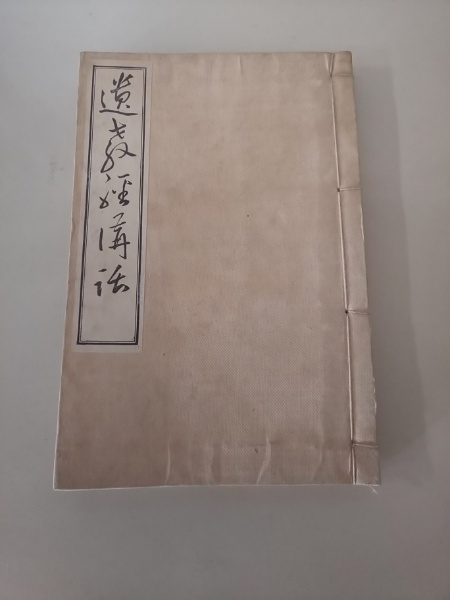 遺教經講話